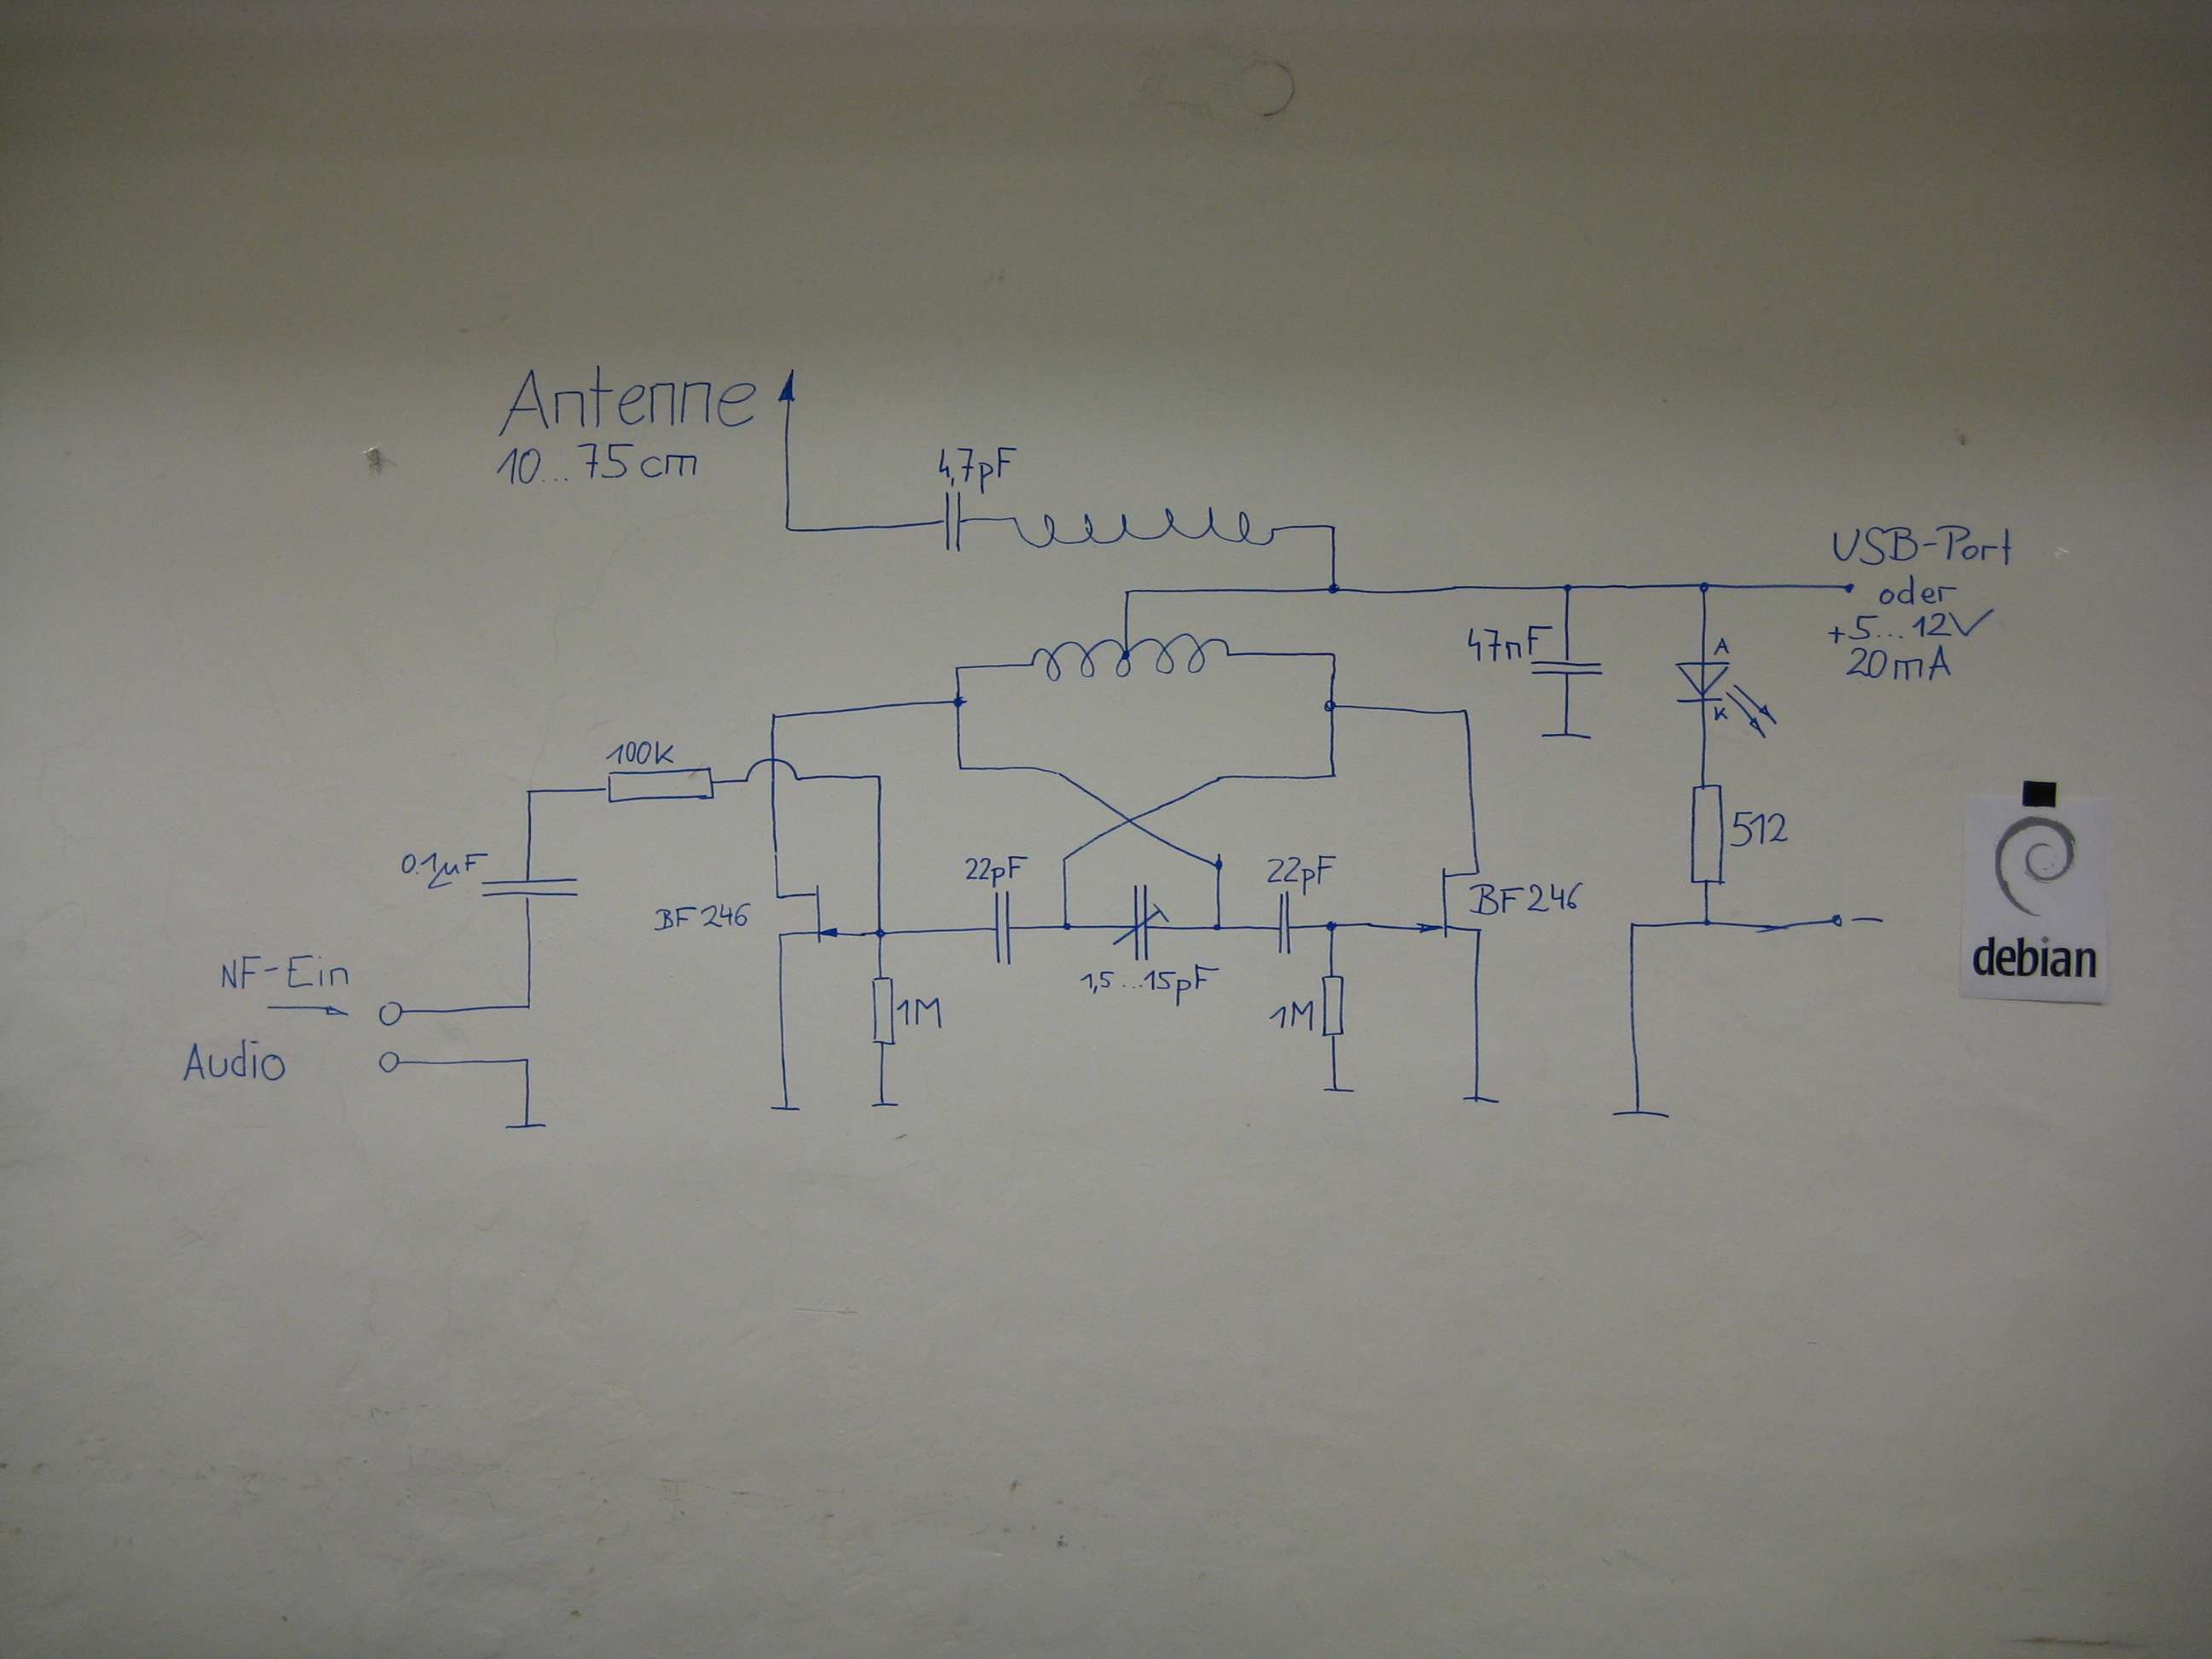 Antenne
10...75cm
4,7pF
USB-Port
oder
+5...12V
20mA
47nF
A
K
100K
512
0.1µF
22pF
22pF
BF 246
BF 246
–
debian
NF-Ein
1,5...15pF
1M
1M
Audio